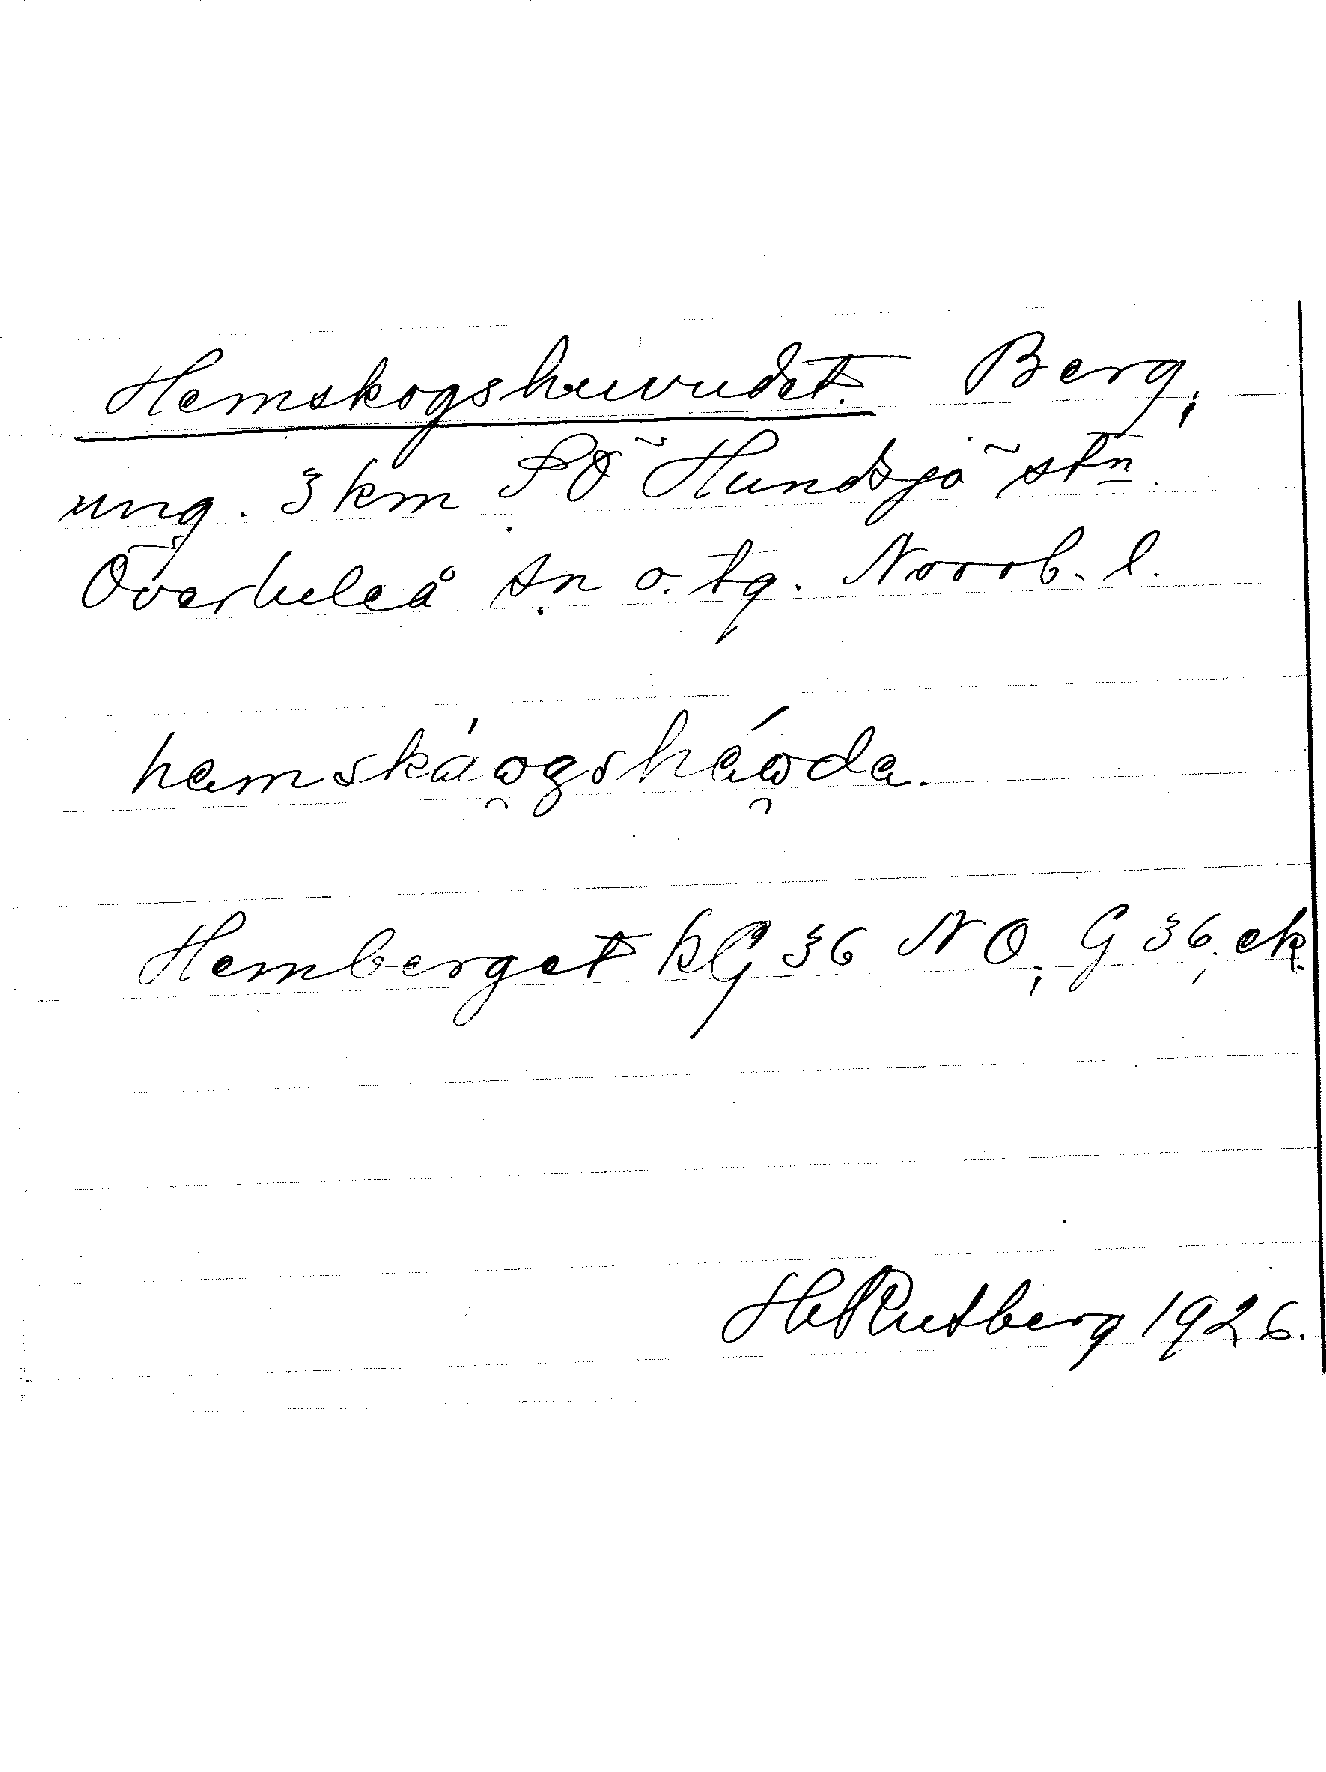 Hemskogshuvudet. Berg,
ung. 3 km SÖ Hundsjö stn.
Överluleå sn o. tg. Norrb. l.
hemskáogsháoda.
Hemberget kG 36 NO, G 36, ek.
HRutberg 1926.